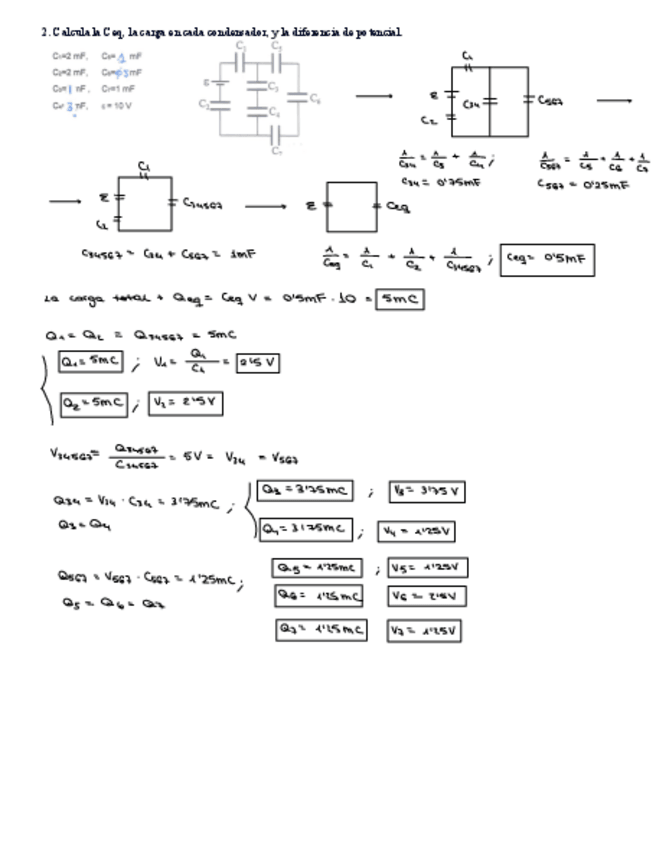 2. Calcula la Ceq, la carga en cada condensador, y la diferencia de potencial.
C₁=2 mF, C₅=1 mF
C₂=2 mF, C₆=0'5 mF
C₃=1 mF, C₇=1 mF
C₄=3 mF, ε=10 V
C₁ C₅
ε C₃ C₆
C₂ C₄
C₇
C₁
ε C₃₄ C₅₆₇
C₂
1/C₃₄ = 1/C₃ + 1/C₄ ; 1/C₅₆₇ = 1/C₅ + 1/C₆ + 1/C₇
C₃₄ = 0'75mF C₅₆₇ = 0'25mF
C₁
ε C₃₄₅₆₇ ε Ceq
C₂
C₃₄₅₆₇ = C₃₄ + C₅₆₇ = 1mF 1/Ceq = 1/C₁ + 1/C₂ + 1/C₃₄₅₆₇ ; Ceq = 0'5mF
La carga total + Qeq = Ceq V = 0'5mF · 10 = 5mC
Q₁ = Q₂ = Q₃₄₅₆₇ = 5mC
Q₁ = 5mC ; V₁ = Q₁/C₁ = 2'5 V
Q₂ = 5mC ; V₂ = 2'5 V
V₃₄₅₆₇ = Q₃₄₅₆₇/C₃₄₅₆₇ = 5V = V₃₄ = V₅₆₇
Q₃₄ = V₃₄ · C₃₄ = 3'75mC ; Q₃ = 3'75mC ; V₃ = 3'75 V
Q₃ = Q₄ Q₄ = 3'75mC ; V₄ = 1'25V
Q₅₆₇ = V₅₆₇ · C₅₆₇ = 1'25mC ; Q₅ = 1'25mC ; V₅ = 1'25V
Q₅ = Q₆ = Q₇ Q₆ = 1'25mC V₆ = 2'5V
Q₇ = 1'25mC V₇ = 1'25V